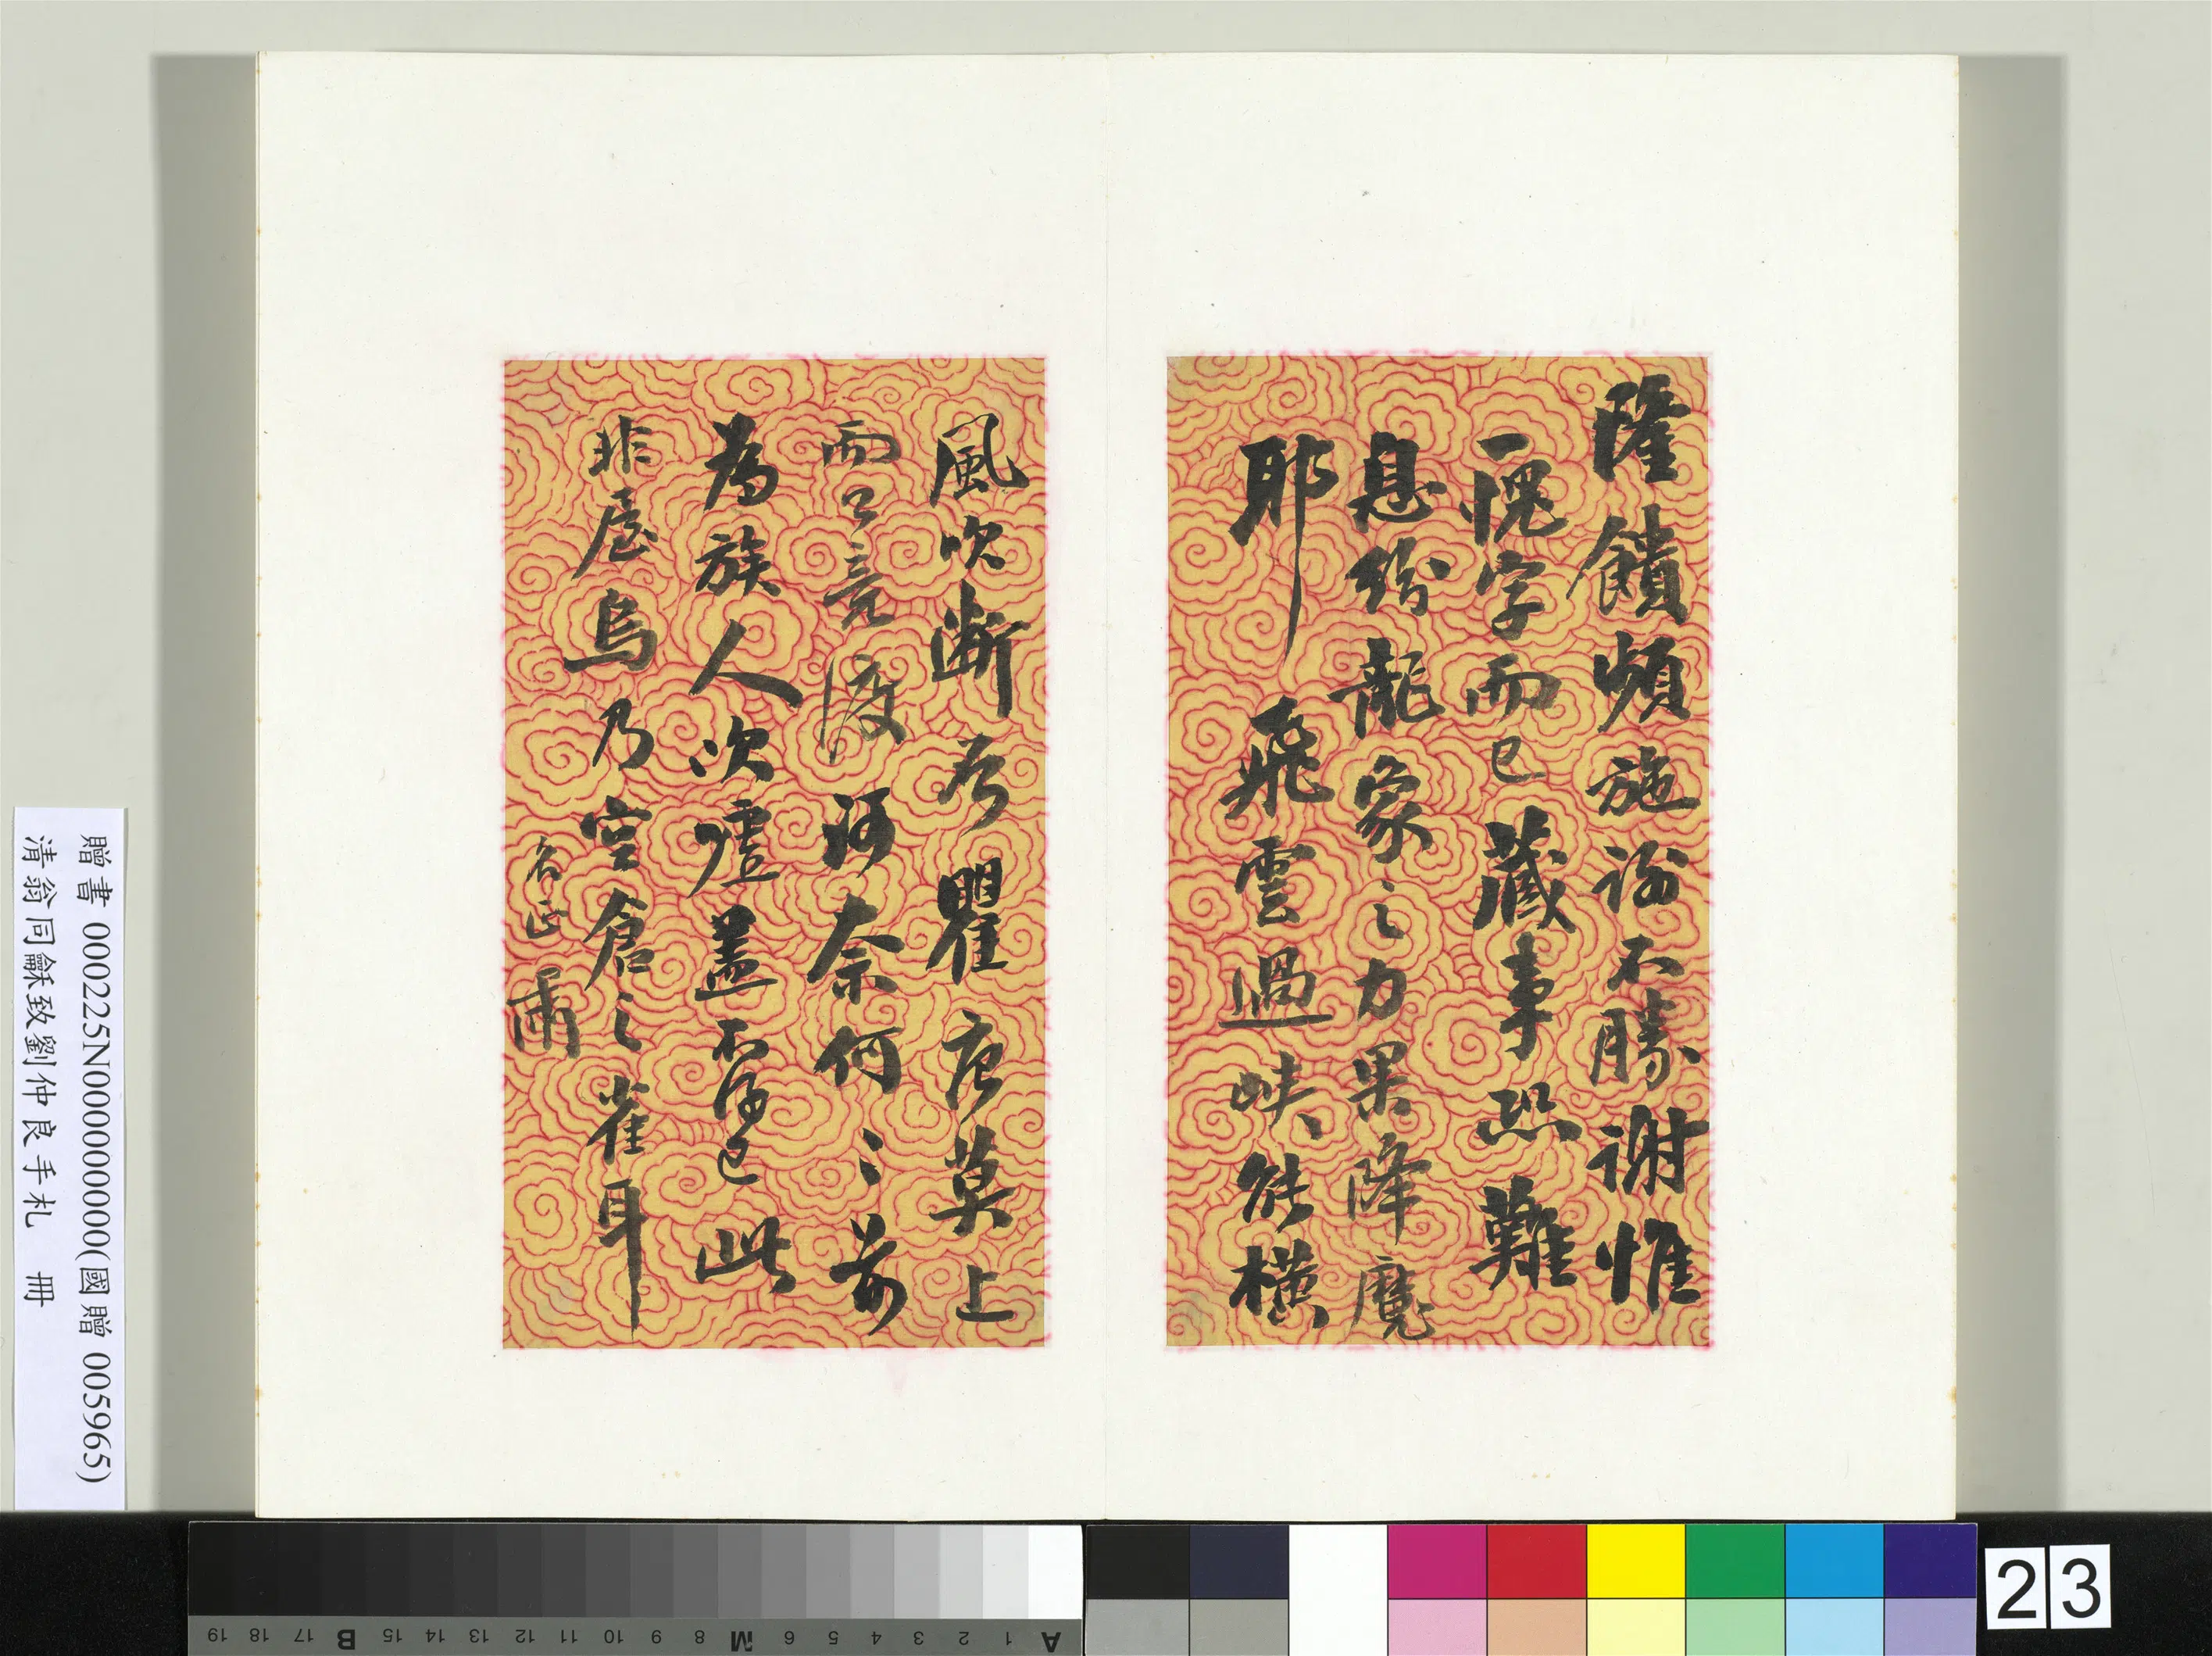 隆饋頻施謝不勝謝惟
一愧字而已蕆事恐難
息紛龍象之力果降魔
耶 飛雲過峽能橫
風吹斷否瞿唐莫上
而公竟渡河奈何〻前
為族人次壚蓋不得已此
非屋烏乃空倉之雀耳
名正肅
贈書 000225N000000000(國贈 005965)
清翁同龢致劉仲良手札 冊
A 1 2 3 4 5 6 M 8 9 10 11 12 13 14 15 B 17 18 19
23